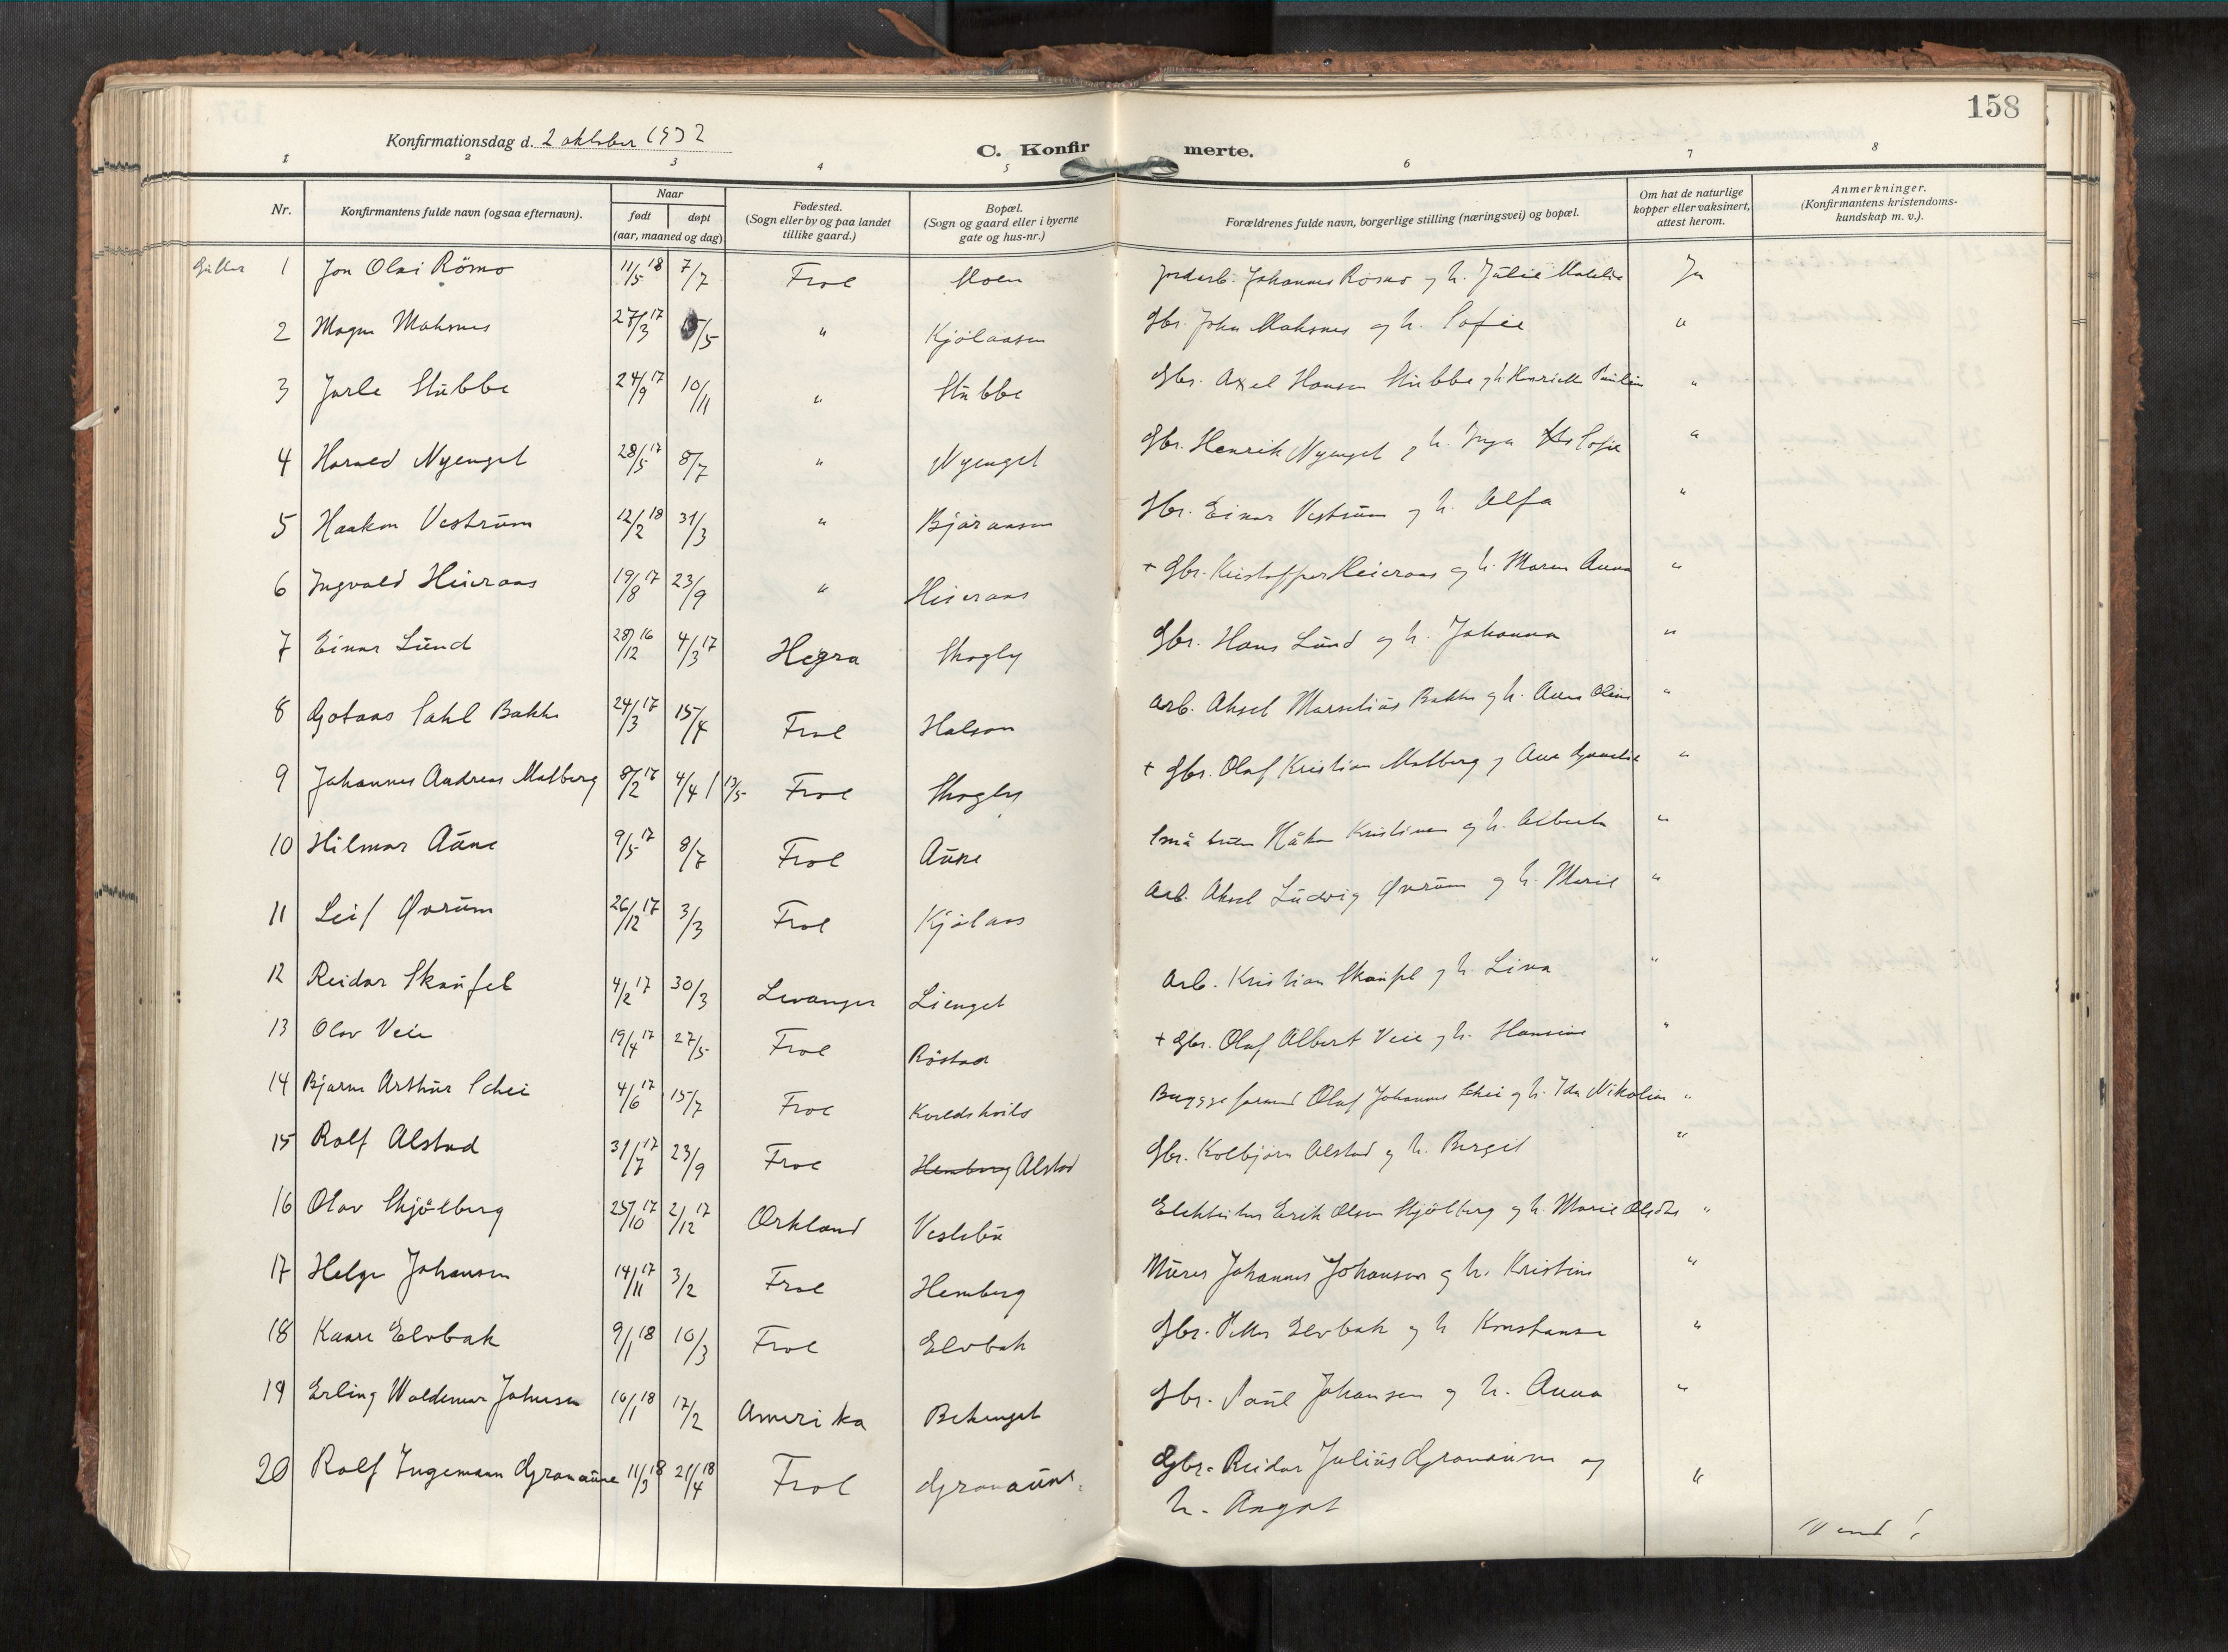 158
Konfirmationsdag d. 2 oktober 1932
C. Konfirmerte.
1 2 3 4 5 6 7 8
Nr. Konfirmantens fulde navn (ogsaa efternavn). Naar født døpt (aar, maaned og dag) Fødested. (Sogn eller by og paa landet tillike gaard.) Bopæl. (Sogn og gaard eller i byerne gate og hus-nr.) Forældrenes fulde navn, borgerlige stilling (næringsvei) og bopæl. Om hat de naturlige kopper eller vaksinert, attest herom. Anmerkninger. (Konfirmantens kristendoms-kundskap m. v.).
Gutter 1 Jon Olai Römo 11/5 18 7/7 Frol Moen Jordarb. Johannes Rösmo og h. Julie Ja
2 Mogne Moksnes 27/3 17 /5 " Kjölaasen Gbr. John Moksnes og h. Sofie "
3 Jarle Stubbe 24/9 17 10/11 " Stubbe Gbr. Axel Hansen Stubbe og h. "
4 Harald Nyenget 28/5 17 8/7 " Nyenget Gbr. Henrik Nyenget og h. Inga Sofie "
5 Haakon Vestrum 12/2 18 31/3 " Gbr. Einar Vestrum og h. Alfa "
6 Ingvald Heieraas 19/8 17 23/9 " Heieraas + Gbr. Kristoffer Heieraas og h. Maren Anna "
7 Einar Lund 28/12 16 4/3 17 Hegra Skogly Gbr. Hans Lund og h. Johanna "
8 Gotaas Bakke 24/3 17 15/4 Frol Halsan Arb. Aksel Marselius Bakke og h. Anna Oline "
9 Johannes Andreas Molberg 8/2 17 4/4 / 13/5 Frol Skogly + Gbr. Olaf Kristian Molberg og Ane "
10 Hilmar Aune 9/5 17 8/7 Frol Aune Småbruker Håkon og h. Alberta "
11 Leif Øvrum 26/12 17 3/3 Frol Kjölaas Arb. Aksel Ludvig Øvrum og h. Marie "
12 Reidar Skaufel 4/2 17 30/3 Levanger Lienget Arb. Kristian Skaufel og h. Lina "
13 Olav Veie 19/4 17 27/5 Frol Röstad + Gbr. Olaf Albert Veie og h. Hansine "
14 Bjarne Arthur Schei 4/6 17 15/7 Frol Kveldshvile Byggeformand Olaf Johannes Schei og h. Ida Nikoline "
15 Rolf Alstad 31/7 17 23/9 Frol Hemberg Alstad Gbr. Kolbjörn Alstad og h. Bergit "
16 Olav Skjölberg 25/10 17 2/12 17 Orkland Veslebu Erik Olsen Skjölberg og h. Marie Olsdtr "
17 Helge Johansen 14/11 17 3/2 Frol Hemberg Murer Johannes Johansen og h. Kristine "
18 Kaare Elvbak 9/1 18 10/3 Frol Elvbak Gbr. Petter Elvbak og h Konstanse "
19 Erling Waldemar Johansen 16/1 18 17/2 Amerika Gbr. Paul Johansen og h. Anna "
20 Rolf Ingemann Granaune 11/3 18 21/4 18 Frol Granaune Gbr. Reidar Julius Granaune og "
h. Aagot
Vend!